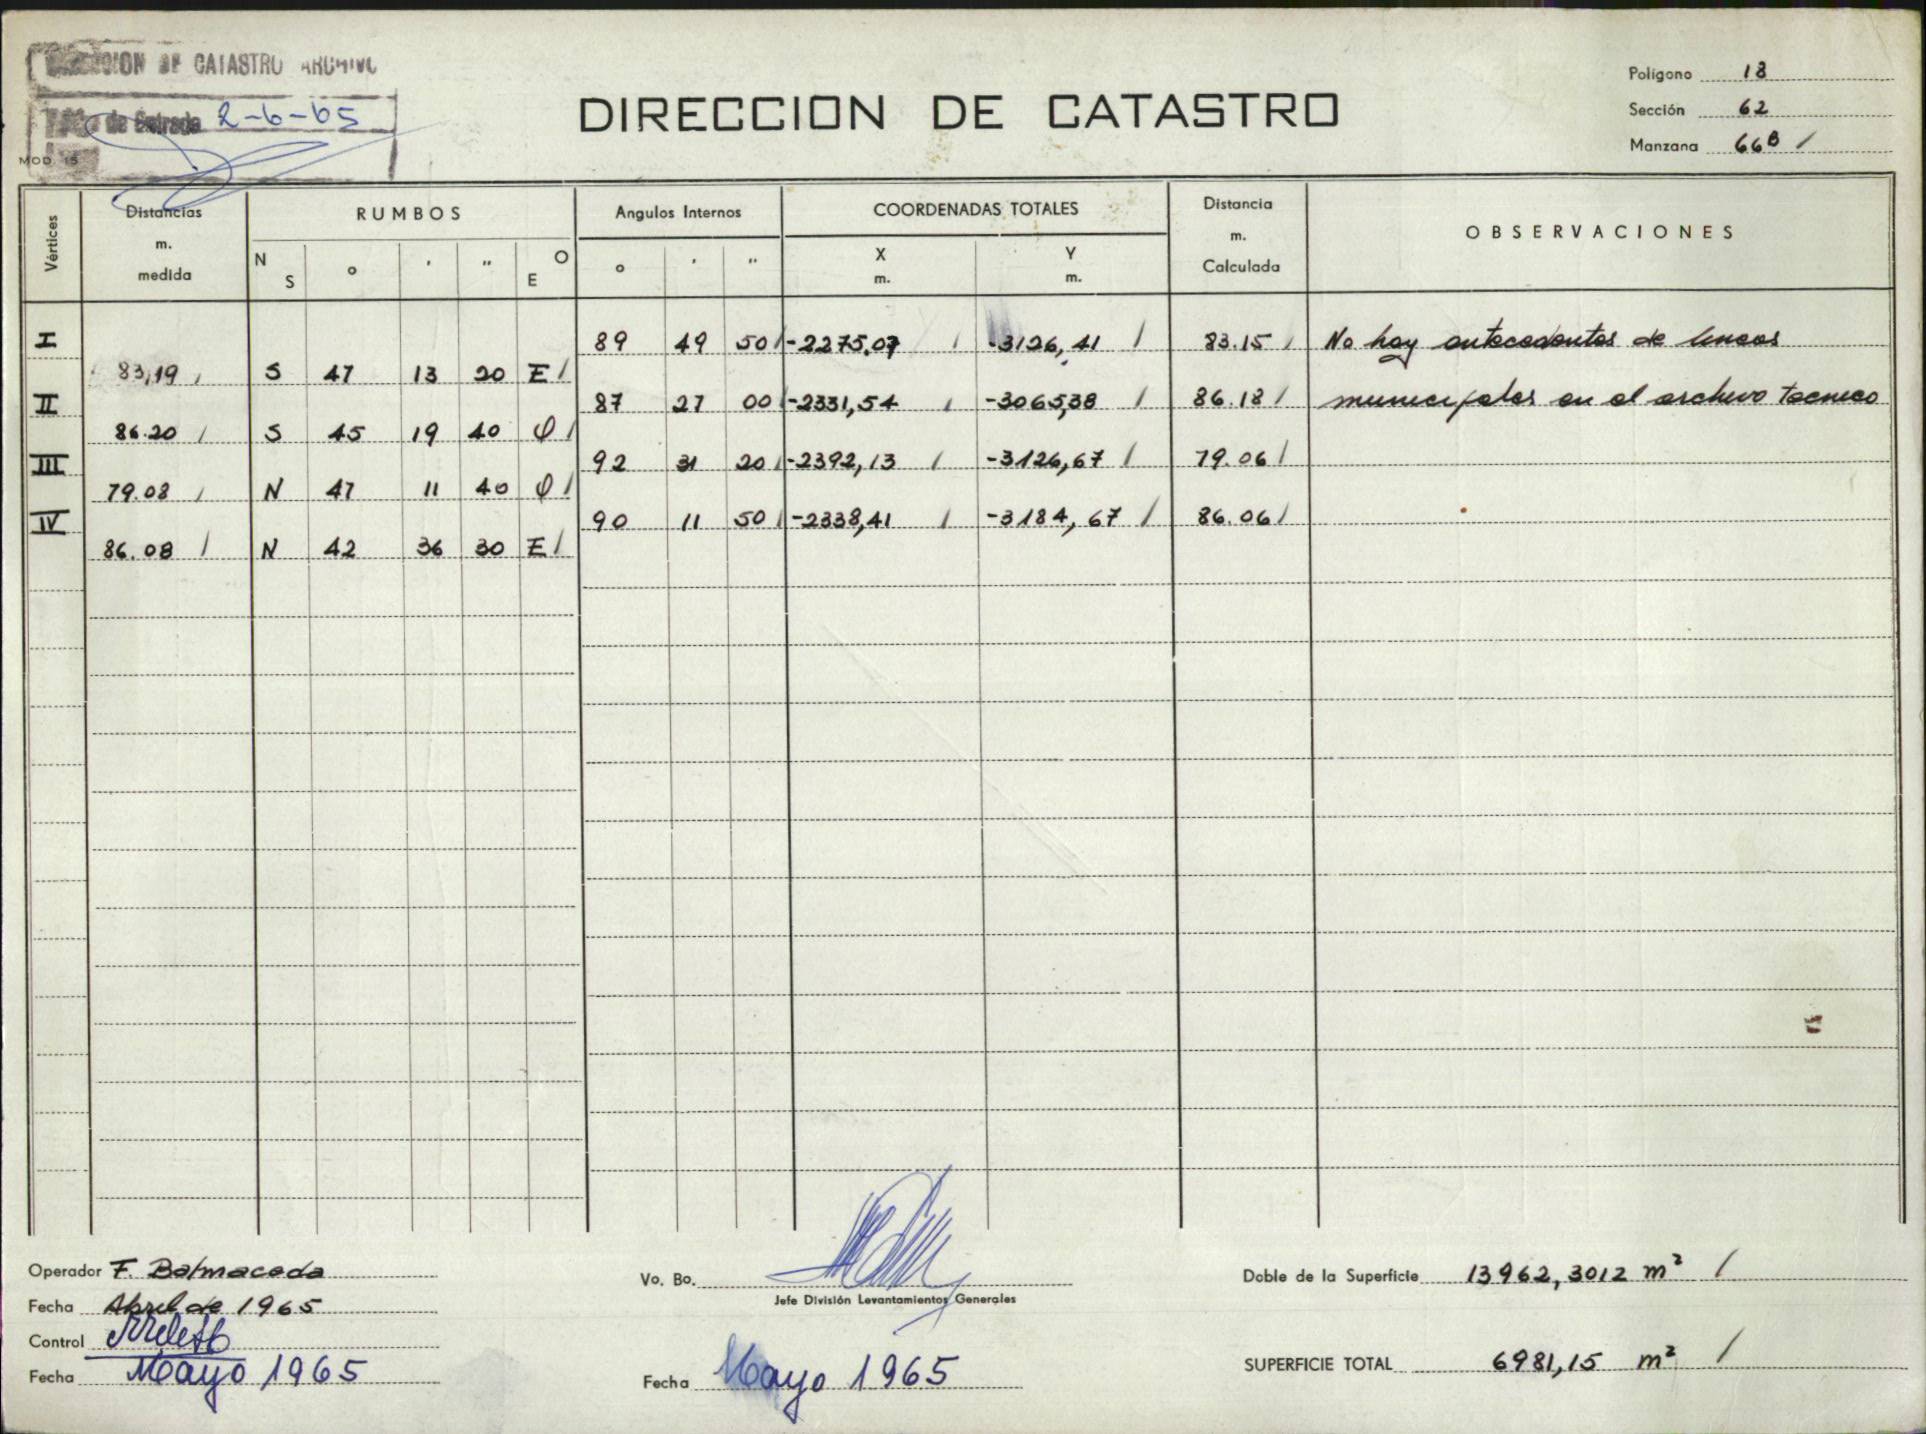 DIRECCION DE CATASTRO ARCHIVO
de Entrada 2-6-65
MOD. 15
DIRECCION DE CATASTRO
Polígono 18
Sección 62
Manzana 66B /
Vértices
Distancias m. medida
RUMBOS
N S ° ' " O E
Angulos Internos
° ' "
COORDENADAS TOTALES
X m. Y m.
Distancia m. Calculada
OBSERVACIONES
I 89 49 50 / -2275,07 / -3126,41 / 83.15 / No hay antecedentes de lineas
83,19 / S 47 13 20 E /
II 87 27 00 / -2331,54 / -3065,38 / 86.18 / municipales en el archivo tecnico
86.20 / S 45 19 40 O /
III 92 31 20 / -2392,13 / -3126,67 / 79.06 /
79.08 / N 47 11 40 O /
IV 90 11 50 / -2338,41 / -3184,67 / 86.06 /
86.08 / N 42 36 30 E /
Operador F. Balmaceda
Fecha Abril de 1965
Control
Fecha Mayo 1965
Vo. Bo.
Jefe División Levantamientos Generales
Fecha Mayo 1965
Doble de la Superficie 13962,3012 m² /
SUPERFICIE TOTAL 6981,15 m² /